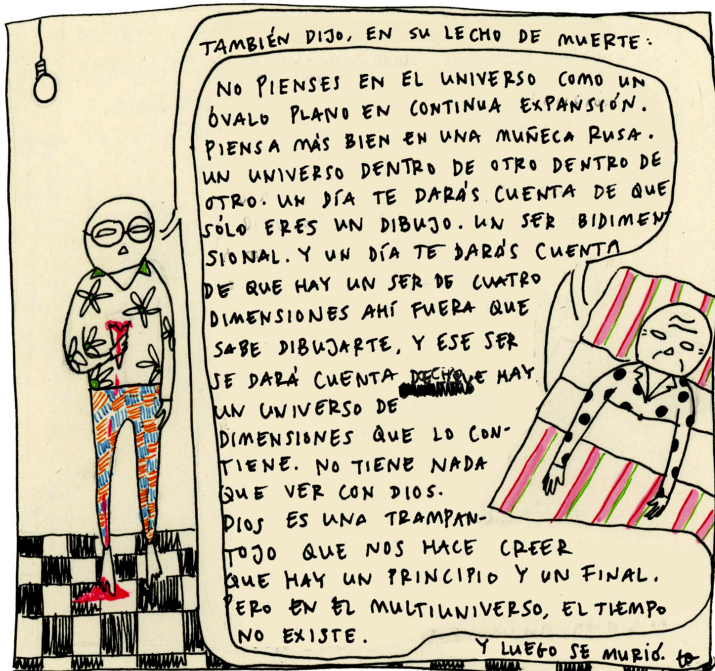 TAMBIÉN DIJO, EN SU LECHO DE MUERTE:
NO PIENSES EN EL UNIVERSO COMO UN
ÓVALO PLANO EN CONTINUA EXPANSIÓN.
PIENSA MÁS BIEN EN UNA MUÑECA RUSA.
UN UNIVERSO DENTRO DE OTRO DENTRO DE
OTRO. UN DÍA TE DARÁS CUENTA DE QUE
SÓLO ERES UN DIBUJO. UN SER BIDIMEN
SIONAL. Y UN DÍA TE DARÁS CUENTA
DE QUE HAY UN SER DE CUATRO
DIMENSIONES AHÍ FUERA QUE
SABE DIBUJARTE, Y ESE SER
SE DARÁ CUENTA HAY
UN UNIVERSO DE
DIMENSIONES QUE LO CON-
TIENE. NO TIENE NADA
QUE VER CON DIOS.
DIOS ES UNA TRAMPAN-
TOJO QUE NOS HACE CREER
QUE HAY UN PRINCIPIO Y UN FINAL.
PERO EN EL MULTIUNIVERSO, EL TIEMPO
NO EXISTE.
Y LUEGO SE MURIÓ.